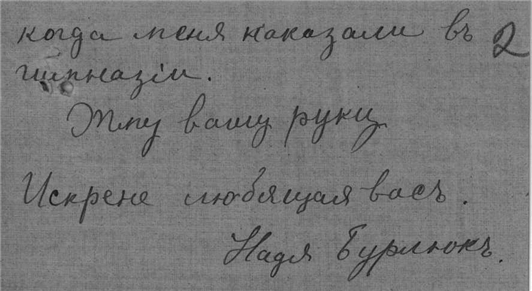 когда меня наказали въ 2
гимназіи.
Жму вашу руку
Искрене любящая васъ.
Надя Бурлюкъ.